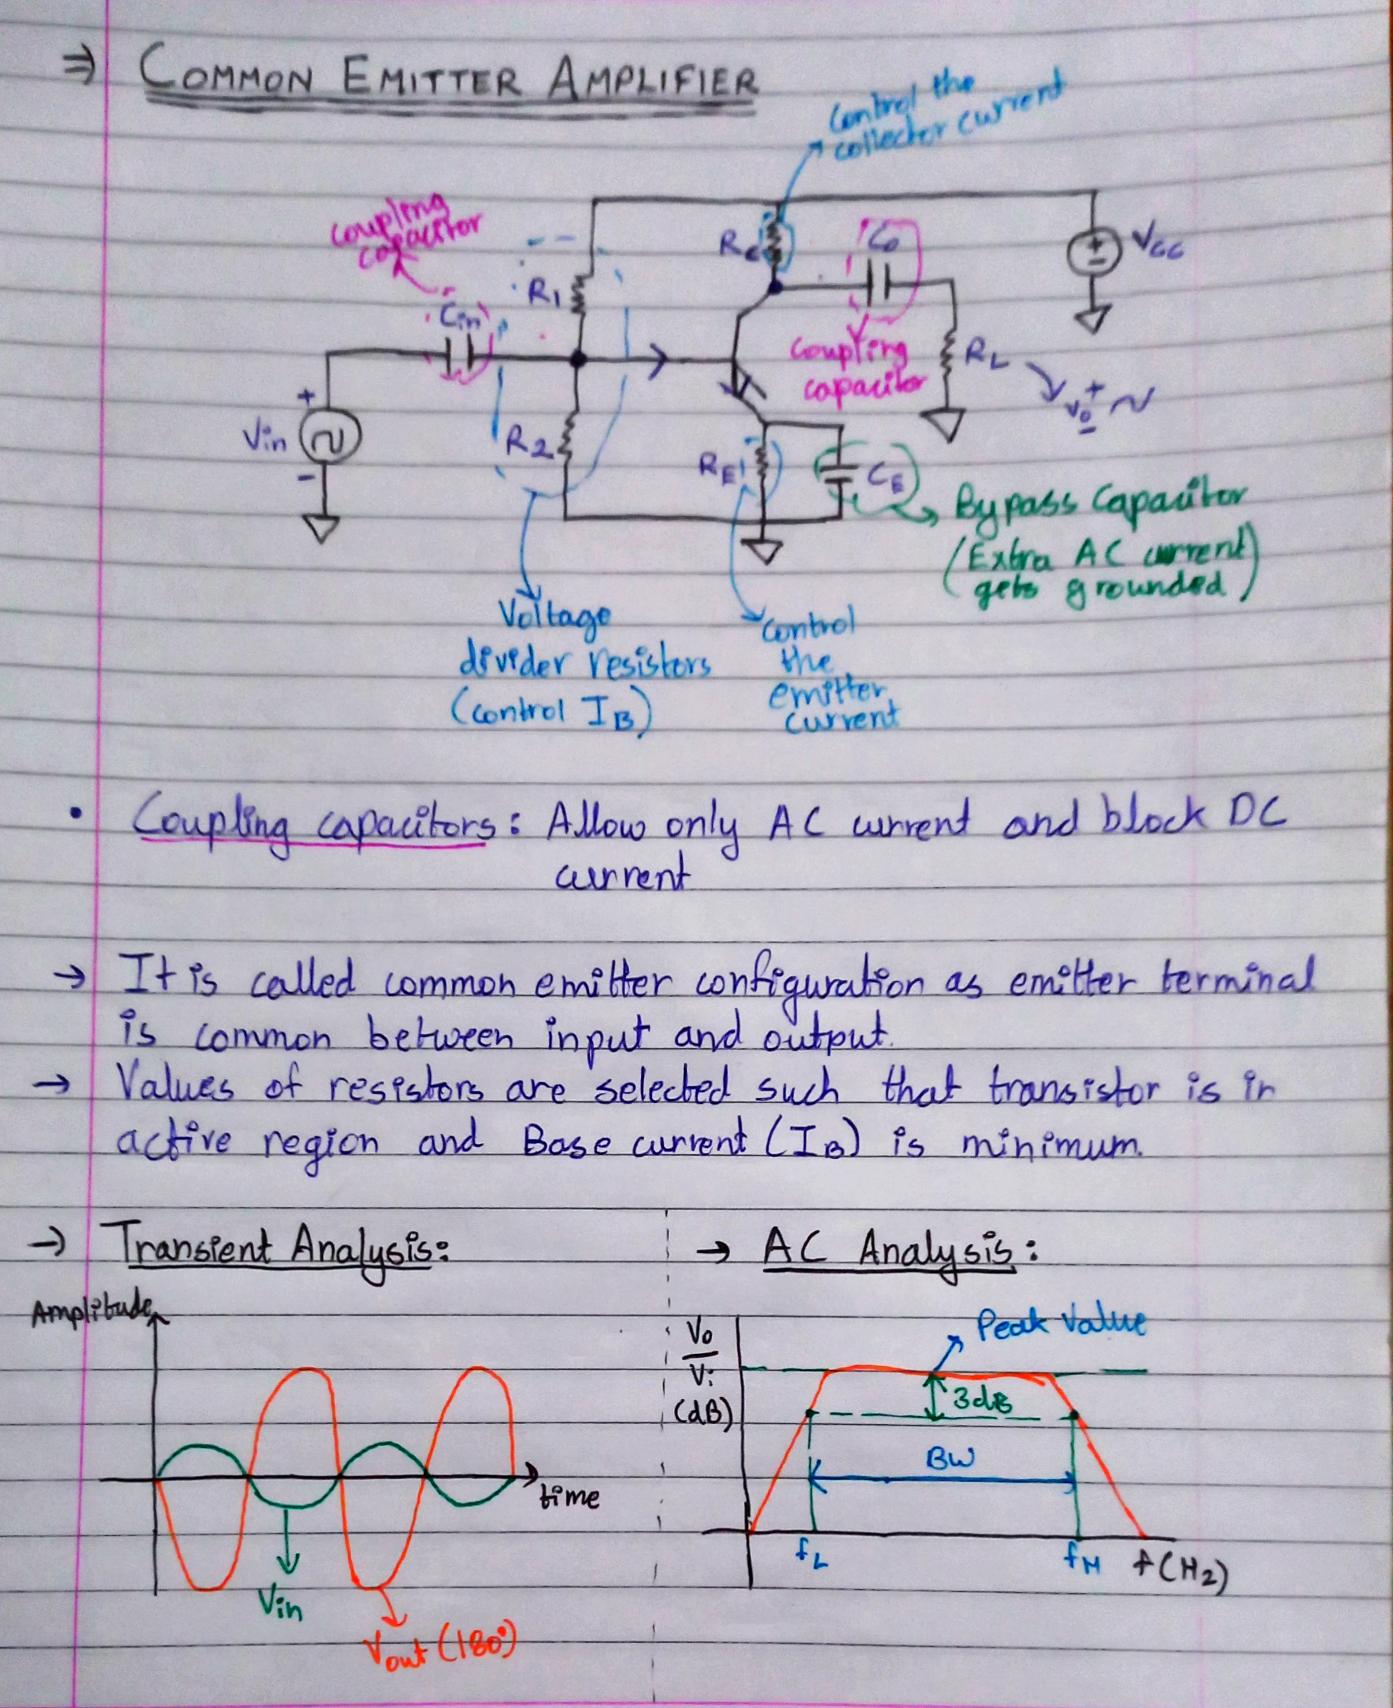 ⇒ COMMON EMITTER AMPLIFIER
Control the
collector current
coupling
capacitor
Cin
R1
RC
Co
VCC
coupling
capacitor
RL
+
Vo
-
+
Vin
-
R2
RE
CE
Bypass Capacitor
(Extra AC current
gets grounded)
Voltage
divider resistors
(control IB)
control
the
emitter
current
• Coupling capacitors: Allow only AC current and block DC
current
→ It is called common emitter configuration as emitter terminal
is common between input and output.
→ Values of resistors are selected such that transistor is in
active region and Base current (IB) is minimum.
→ Transient Analysis:
Amplitude
time
Vin
Vout (180°)
→ AC Analysis:
Vo
Vi
(dB)
Peak Value
3dB
BW
fL
fH
f(Hz)